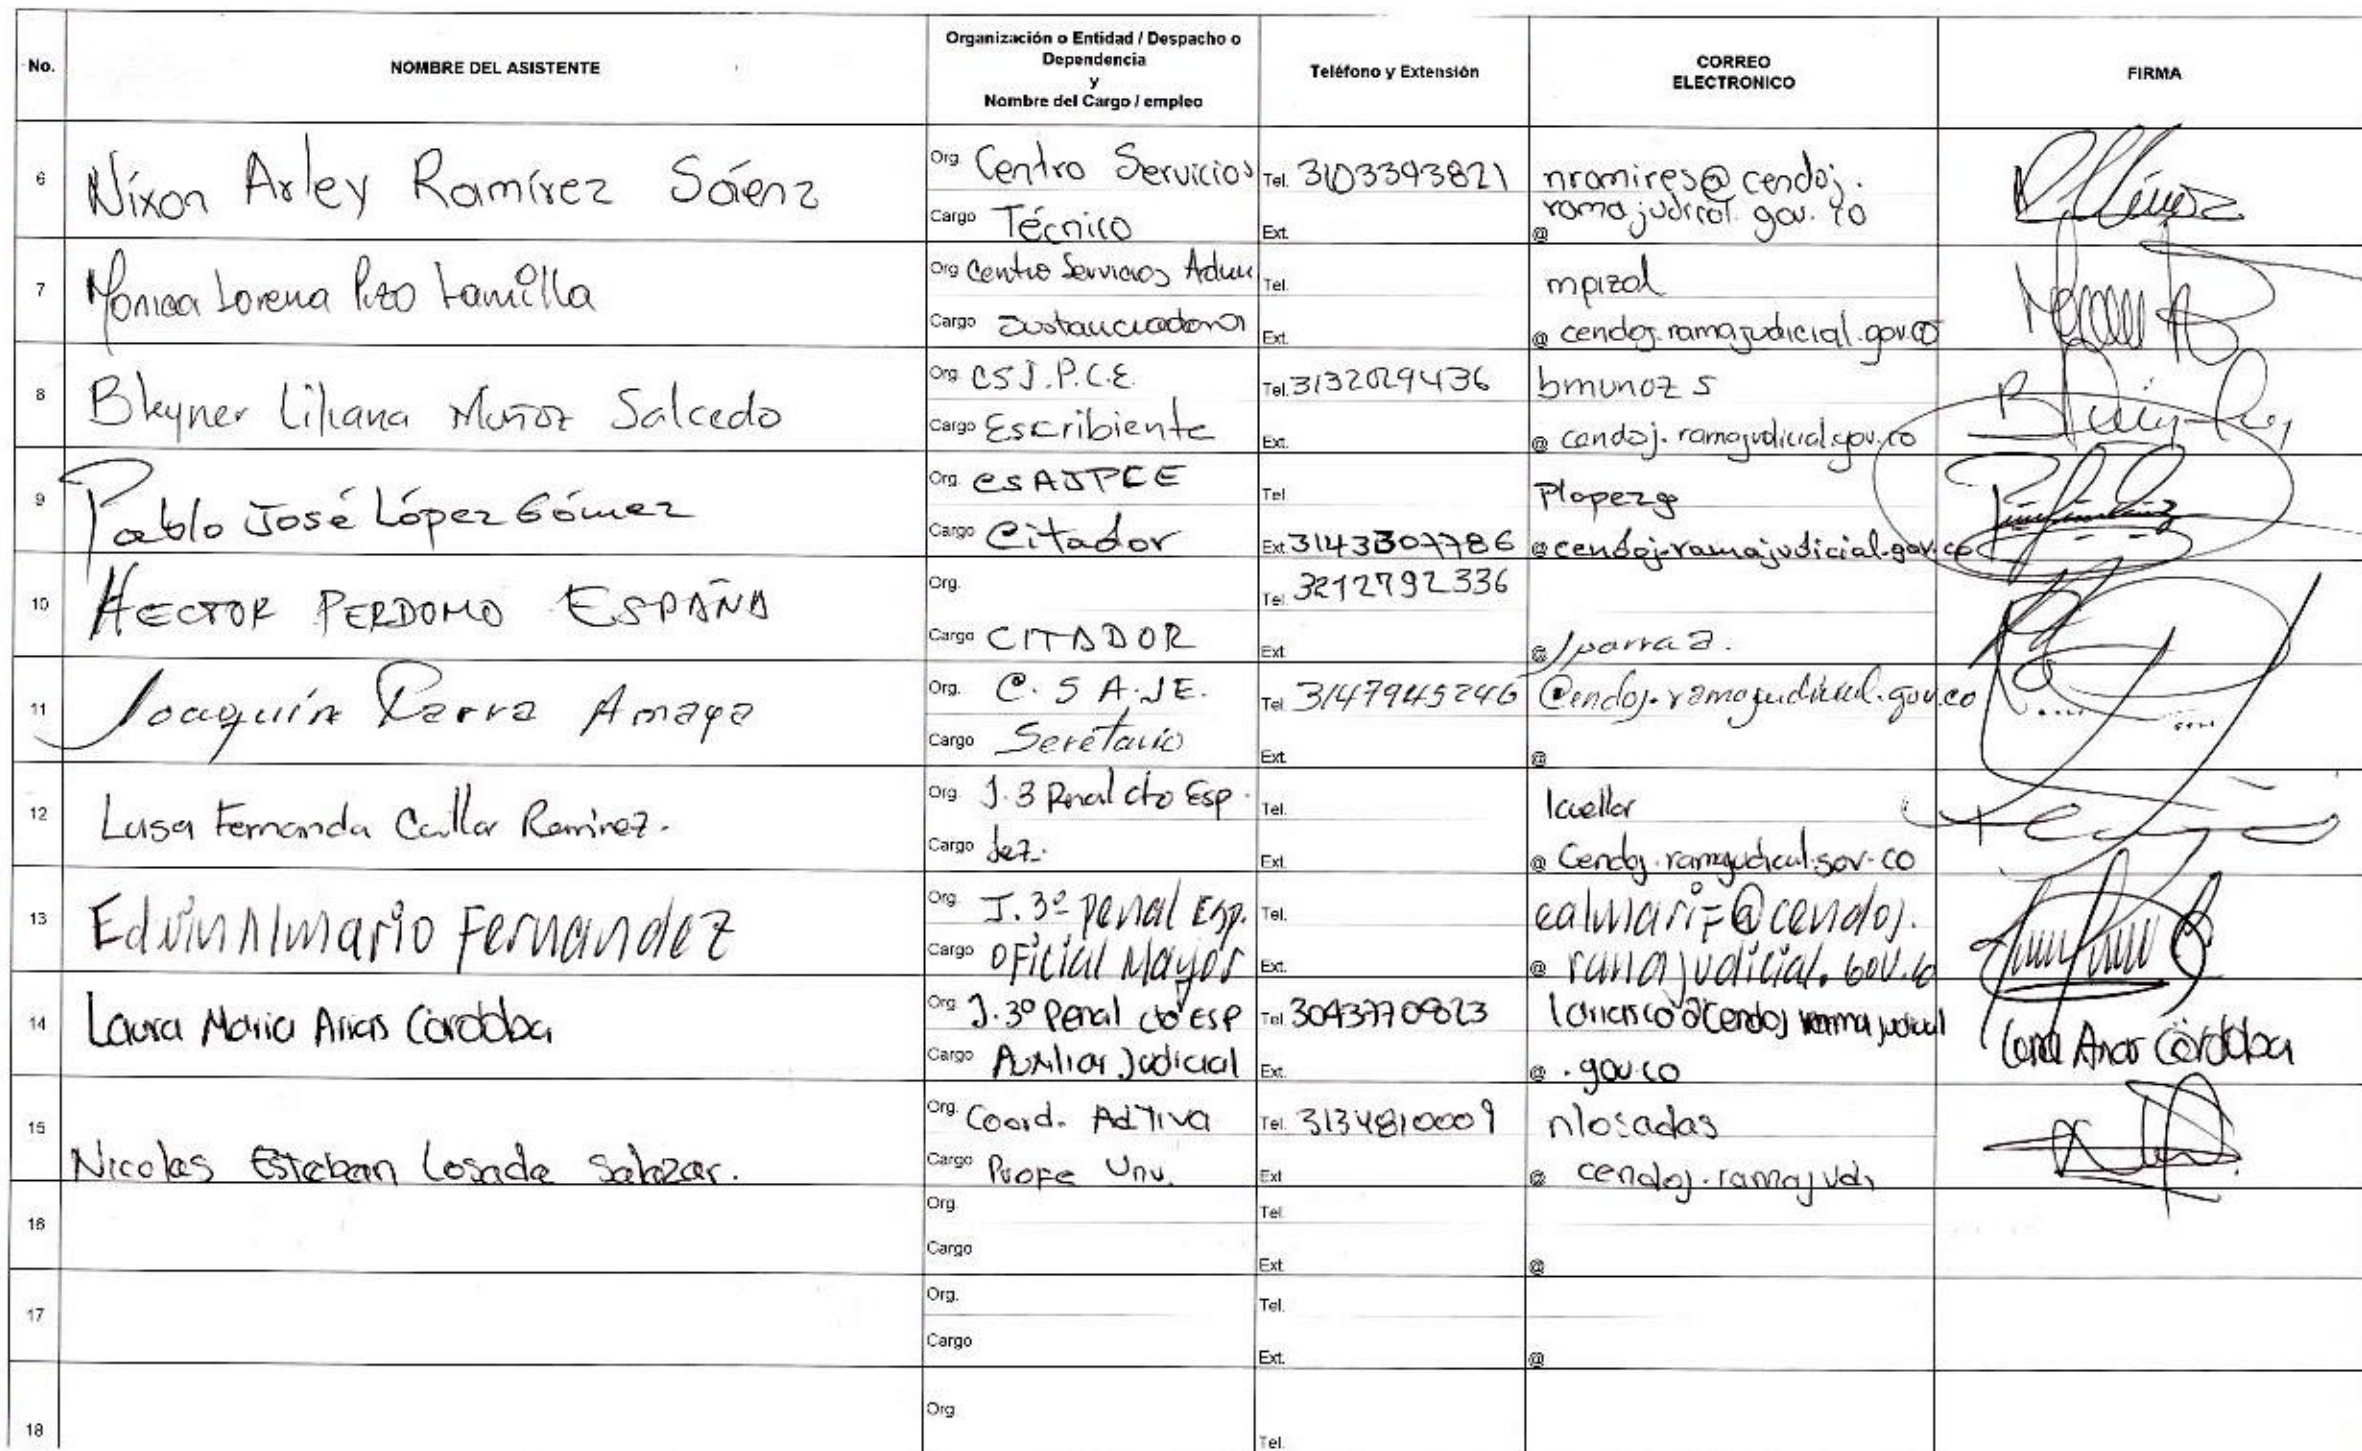 No.
NOMBRE DEL ASISTENTE
Organización o Entidad / Despacho o
Dependencia
y
Nombre del Cargo / empleo
Teléfono y Extensión
CORREO
ELECTRONICO
FIRMA
6
Nixon Arley Ramírez Sáenz
Org. Centro Servicios
Cargo Técnico
Tel. 3103393821
Ext.
nramires@cendoj.
ramajudicial.gov.co
@
7
Monica Lorena Pizo
Org Centro Servicios Adm
Cargo Sustanciadora
Tel.
Ext.
mpizal
@ cendoj.ramajudicial.gov.co
8
Bleyner Liliana Muñoz Salcedo
Org. CSJ.P.C.E.
Cargo Escribiente
Tel. 3132029436
Ext.
bmunoz s
@ cendoj.ramajudicial.gov.co
9
Pablo José López Gómez
Org. CSAJPCE
Cargo Citador
Tel
Ext. 3143307786
Plopezg
@cendoj.ramajudicial.gov.co
10
HECTOR PERDOMO ESPAÑA
Org.
Cargo CITADOR
Tel. 3212792336
Ext
@ Jparra a.
11
Joaquín Parra Amaya
Org. C. S A.JE.
Cargo Seretario
Tel. 3147945246
Ext.
@endoj.ramajudicial.gov.co
@
12
Luisa Fernanda Cuellar Ramirez.
Org. J. 3 Penal cto Esp.
Cargo Jez.
Tel.
Ext.
lcuellar
@ Cendoj.ramajudicial.gov.co
13
Edwin Almario Fernandez
Org. J. 3º penal Esp.
Cargo OFICIAL Mayor
Tel.
Ext.
ealmarif@cendoj.
@ ramajudicial.gov.co
14
Laura Maria Arias Córdoba
Org J.3º Penal cto Esp
Cargo Auxiliar Judicial
Tel. 3043770823
Ext.
lariasco@cendoj ramajudicial
@ .gov.co
Laura Arias Córdoba
15
Nicolas Esteban Losada Salazar.
Org. Coord. AdTiva
Cargo Profe Unv.
Tel. 3134810009
Ext
nlosadas
@ cendoj.ramajudi
16
Org.
Cargo
Tel.
Ext
@
17
Org.
Cargo
Tel.
Ext.
@
18
Org
Tel.